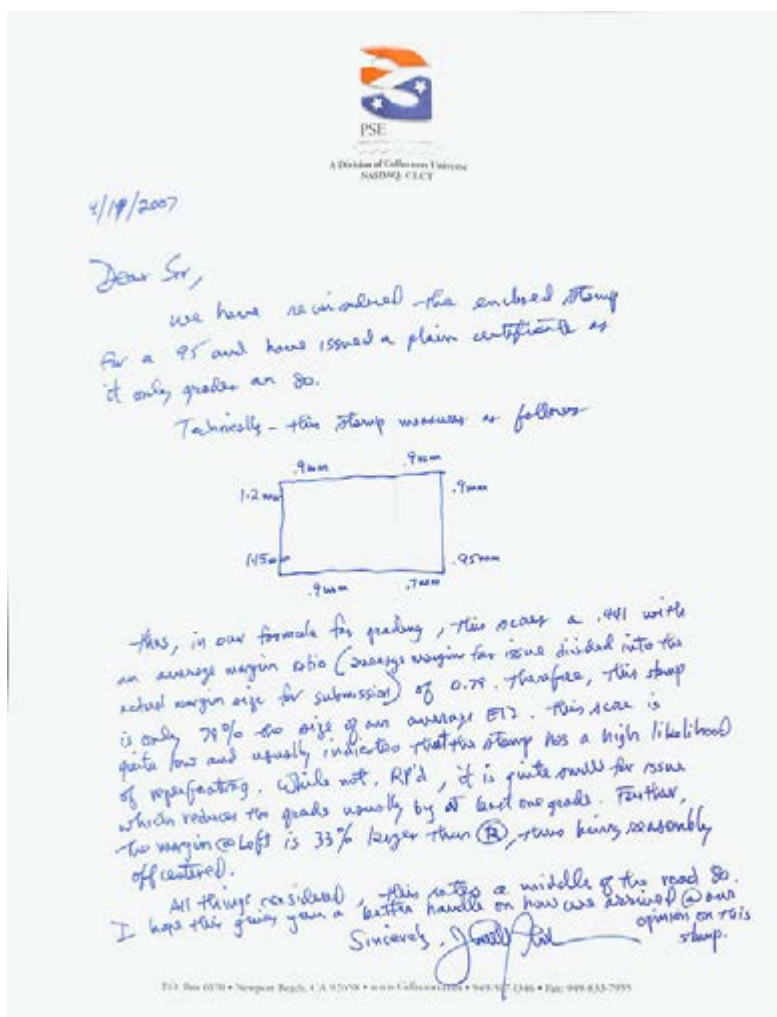 PSE
A Division of Collectors Universe
NASDAQ: CLCT
4/19/2007
Dear Sir,
we have reconsidered the enclosed stamp
for a 95 and have issued a plain certificate as
it only grades an 80.
Technically - this stamp measures as follows
.9mm .9mm
1.2mm .9mm
1.15mm .95mm
.9mm .7mm
thus, in our formula for grading, this scores a .441 with
an average margin ratio (average margin for issue divided into the
actual margin size for submission) of 0.79. Therefore, this stamp
is only 79% the size of an average E12. This score is
quite low and usually indicates that the stamp has a high likelihood
of reperforating. While not RP'd, it is quite small for issue
which reduces the grade usually by at least one grade. Further,
the margin @ Left is 33% larger than R, thus being reasonably
off centered.
All things considered, this rates a middle of the road 80.
I hope this gives you a better handle on how we arrived @ our
opinion on this
stamp.
Sincerely,
P.O. Box 6170 • Newport Beach, CA 92658 • • Fax: 949-833-7955